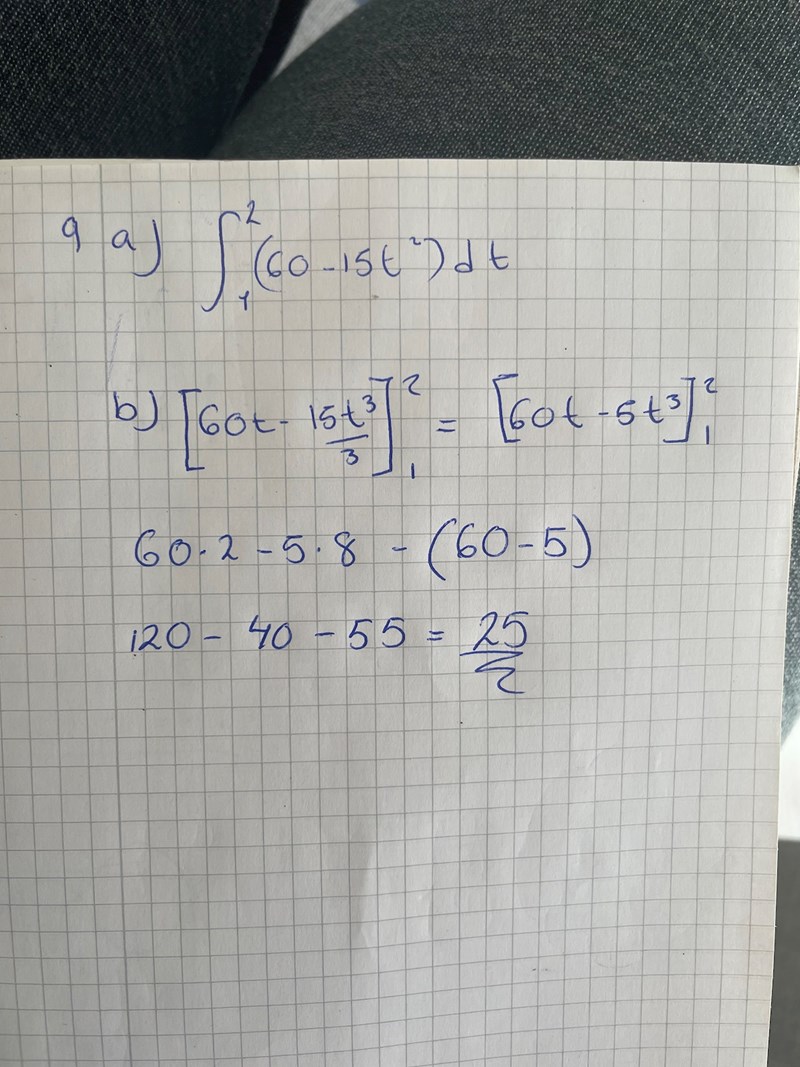 9 a) ∫₁² (60 - 15t²) dt
b) [60t - 15t³/3]₁² = [60t - 5t³]₁²
60·2 - 5·8 - (60 - 5)
120 - 40 - 55 = 25